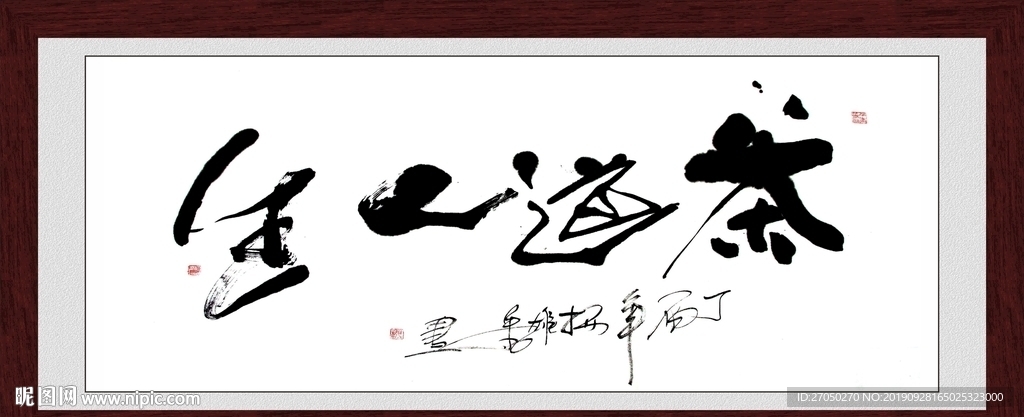 茶道人生
丁酉年 書
昵图网 www.nipic.com
ID:27050270 NO:20190928165025323000